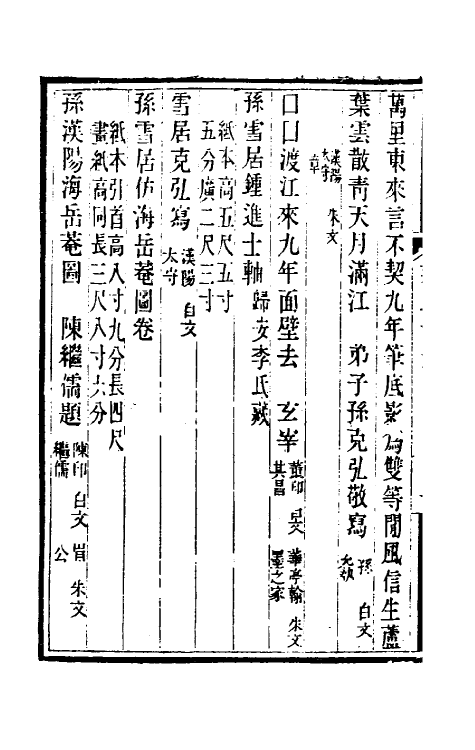 萬里東來言不契九年筆底影為雙等閒風信生蘆
葉雲散靑天月滿江　弟子孫克弘敬寫　孫允執　白文
漢陽太守章　朱文
口口渡江來九年面壁去　玄宰　董印其昌　白文　華亭翰墨之家　朱文
孫雪居鍾進士軸　歸安李氏藏
紙本高五尺五寸
五分廣二尺三寸
雪居克弘寫　漢陽太守　白文
孫雪居仿海岳菴圖卷
紙本引首高八寸九分長四尺
畫紙高同長三尺八寸六分
孫漢陽海岳菴圖　陳繼儒題　陳印繼儒　白文　眉公　朱文